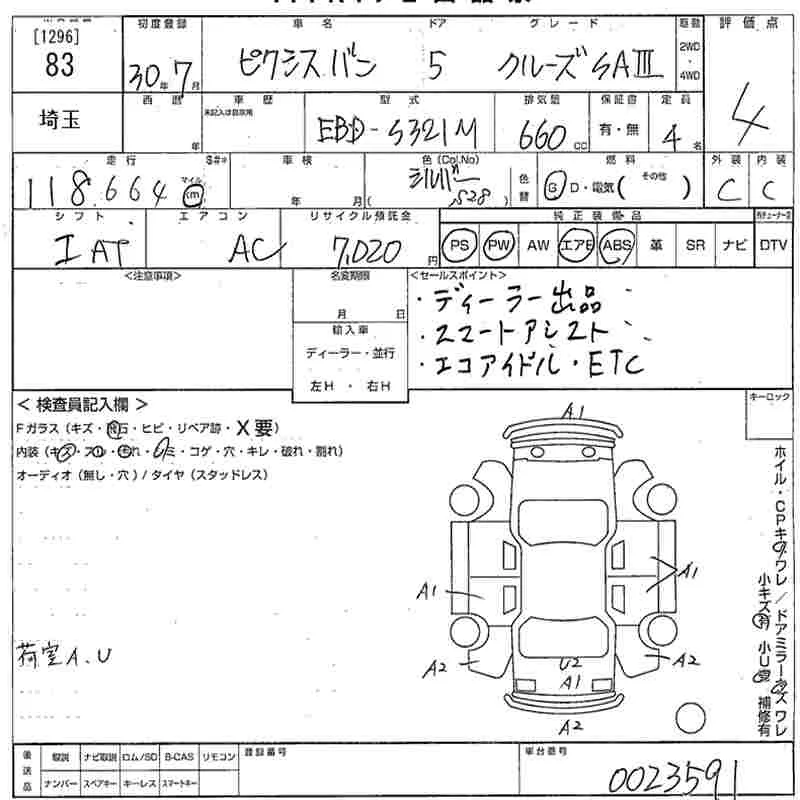 [1296]
83
初度登録
30年7月
車名
ピクシスバン
ドア
5
グレード
クルーズSAⅢ
駆動
2WD
・
4WD
評価点
4
埼玉
西暦
年
車歴
未記入は自家用
型式
EBD-S321M
排気量
660cc
保証書
有・無
定員
4名
走行
118,664
マイル
km
S#*
車検
年 月
色(Col.No)
シルバー
(S28)
色替
燃料
G D・電気( その他 )
外装
C
内装
C
シフト
IAT
エアコン
AC
リサイクル預託金
7,020円
純正装備品
PS PW AW エアB ABS 革 SR ナビ DTV
<注意事項>
名変期限
月 日
輸入車
ディーラー・並行
左H ・ 右H
<セールスポイント>
・ディーラー出品
・スマートアシスト
・エコアイドル・ETC
<検査員記入欄>
Fガラス(キズ・飛石・ヒビ・リペア跡・X要)
内装(キズ・スレ・汚れ・シミ・コゲ・穴・キレ・破れ・割れ)
オーディオ(無し・穴)/タイヤ(スタッドレス)
キーロック
A1
A1
A1
A2
A2
U2
A1
A2
荷室A.U
ホイル・CPキズワレ/ドアミラーキズワレ
小キズ有 小U有 補修有
後送品
取説 ナビ取説 ロム/SD B-CAS リモコン
ナンバー スペアキー キーレス スマートキー
登録番号
車台番号
0023591